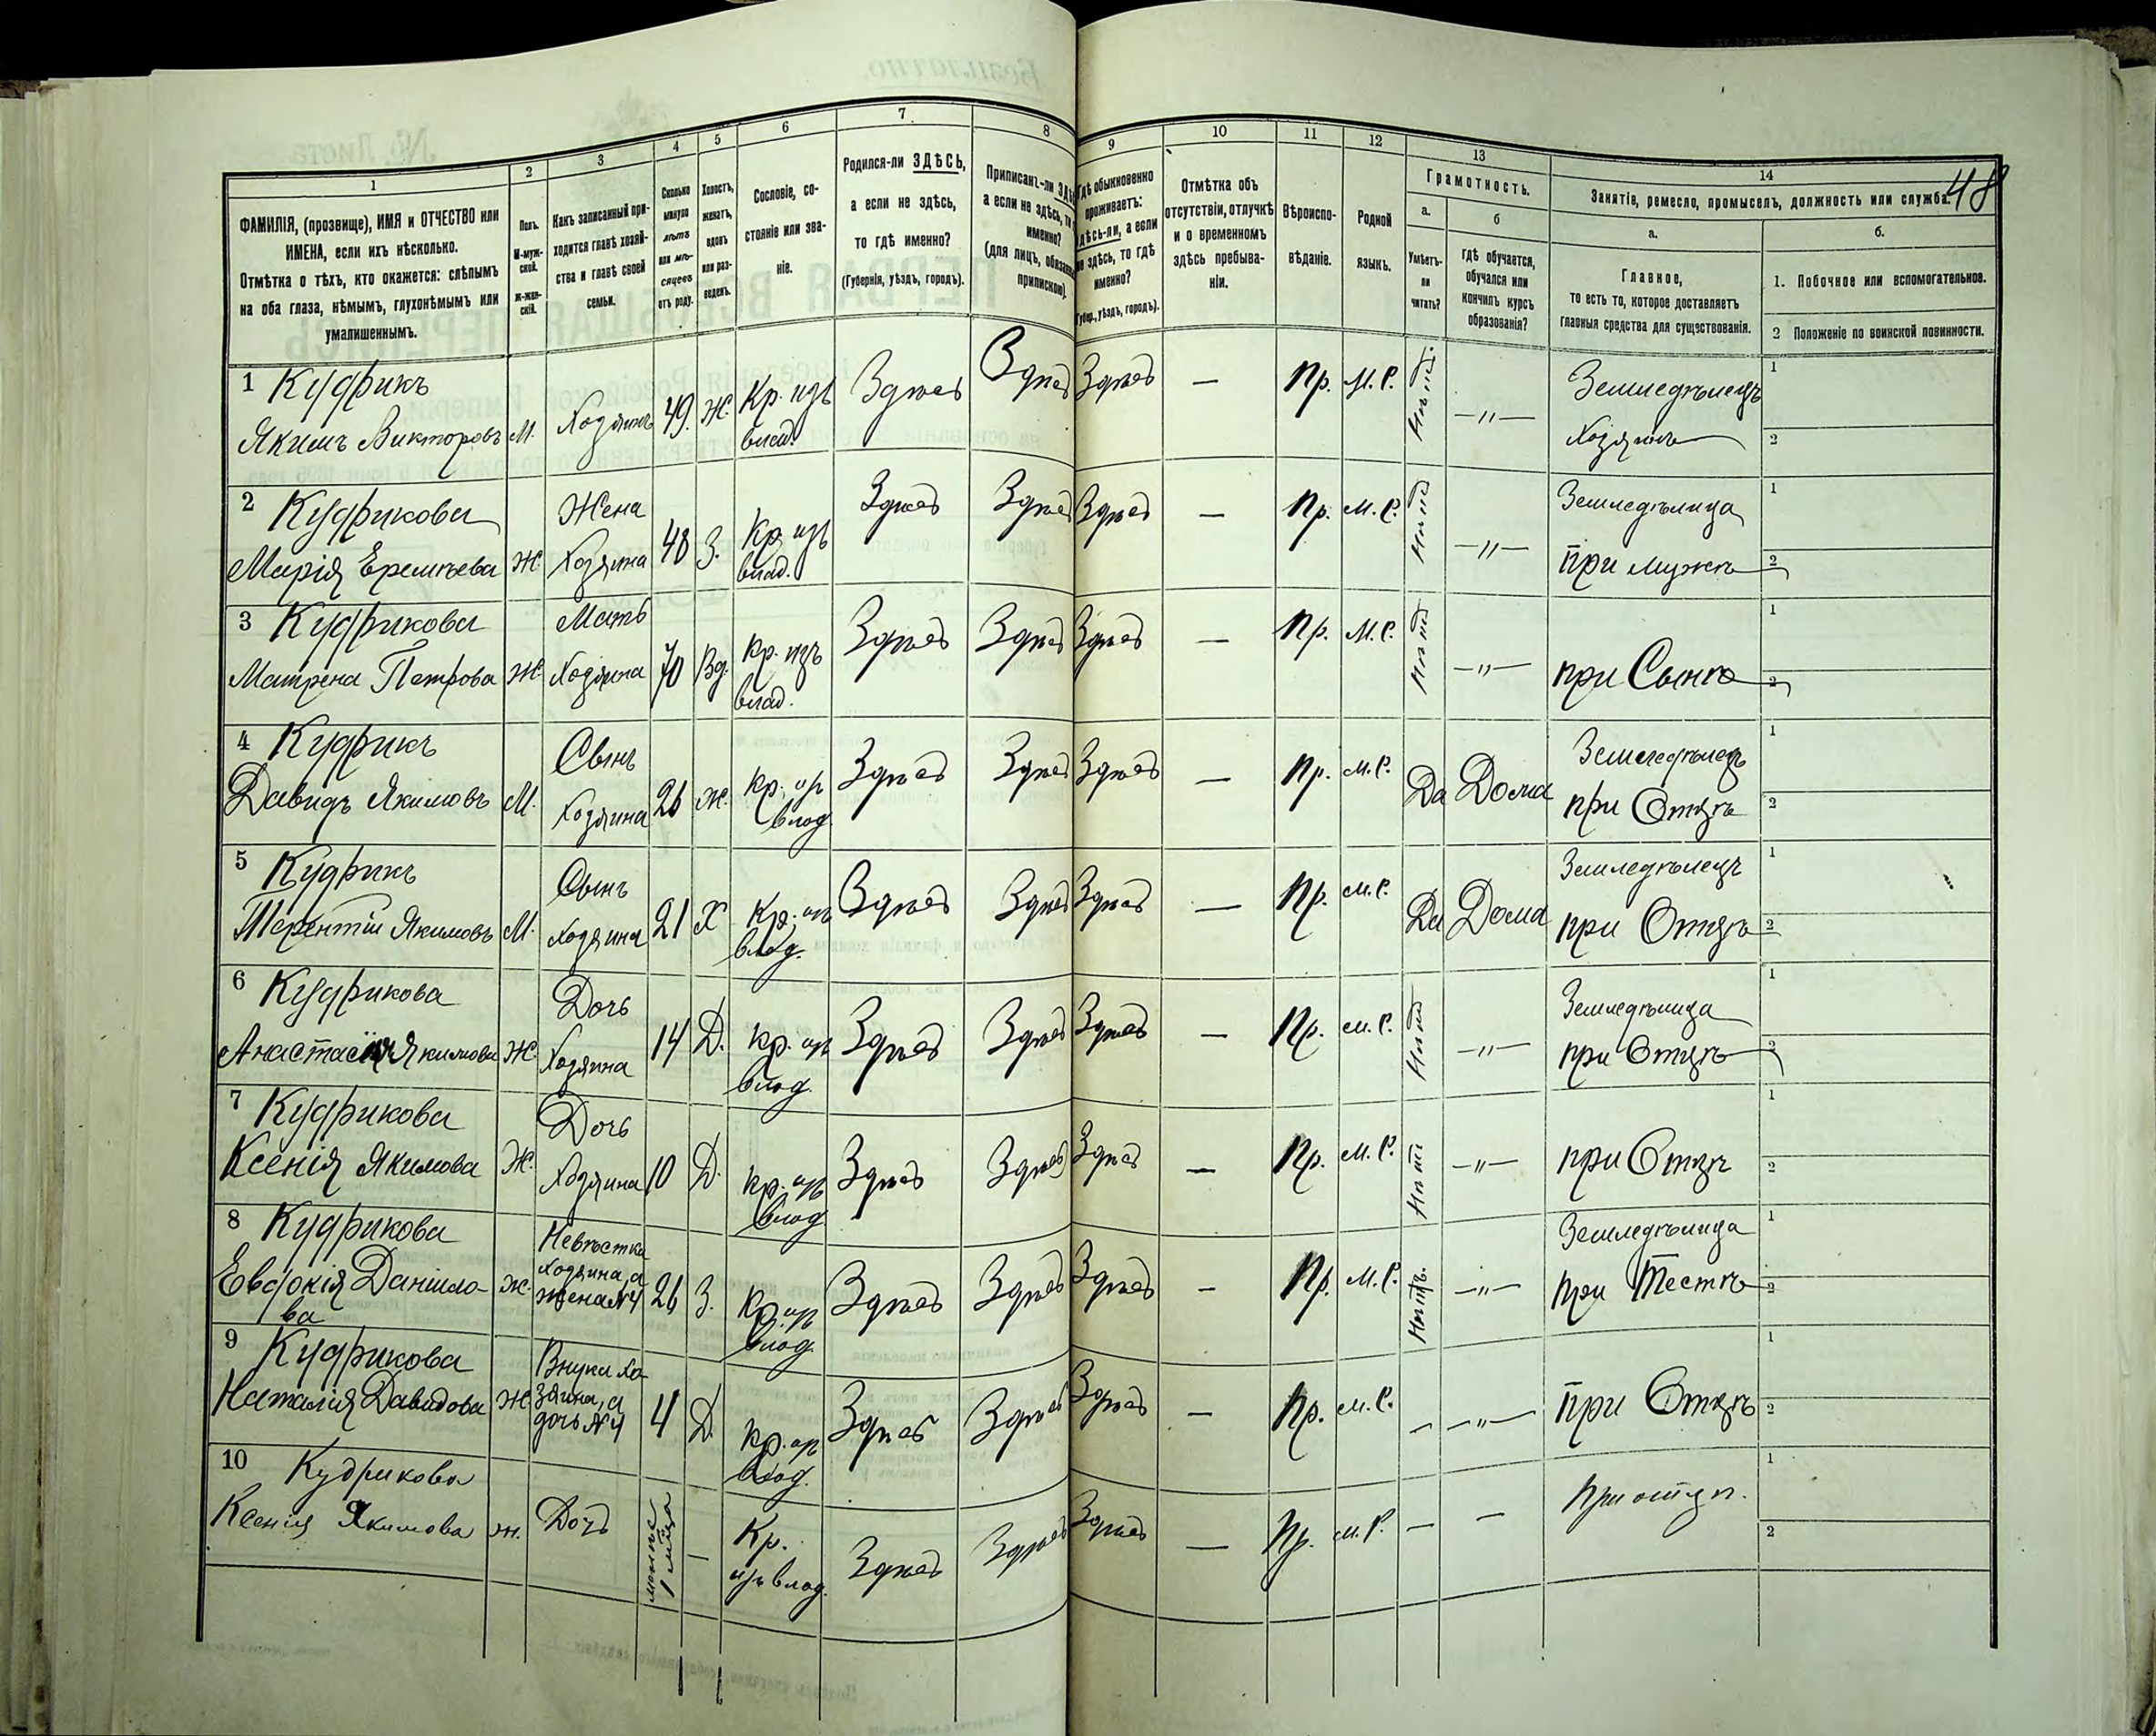 48
1 2 3 4 5 6 7 8 9 10 11 12 13 14
ФАМИЛІЯ, (прозвище), ИМЯ и ОТЧЕСТВО или ИМЕНА, если ихъ нѣсколько.
Отмѣтка о тѣхъ, кто окажется: слѣпымъ на оба глаза, нѣмымъ, глухонѣмымъ или умалишеннымъ.
Полъ. М-мужской. Ж-женскій.
Какъ записанный приходится главѣ хозяйства и главѣ своей семьи.
Сколько минуло лѣтъ или мѣсяцевъ отъ роду.
Холостъ, женатъ, вдовъ или разведенъ.
Сословіе, состояніе или званіе.
Родился-ли ЗДѢСЬ, а если не здѣсь, то гдѣ именно?
(Губернія, уѣздъ, городъ).
Приписанъ-ли а если не здѣсь, именно?
(для лицъ, припискою)
Гдѣ обыкновенно проживаетъ: здѣсь-ли, а если не здѣсь, то гдѣ именно?
уѣздъ, городъ).
Отмѣтка объ отсутствіи, отлучкѣ и о временномъ здѣсь пребываніи.
Вѣроисповѣданіе.
Родной языкъ.
Грамотность.
а. б
Умѣетъ-ли читать?
Гдѣ обучается, обучался или кончилъ курсъ образованія?
Занятіе, ремесло, промыселъ, должность или служба.
а. б.
Главное, то есть то, которое доставляетъ главныя средства для существованія.
1. Побочное или вспомогательное.
2 Положеніе по воинской повинности.
1 Кудрикъ Здѣсь Здѣсь Здѣсь — Пр. М.Р. Нѣтъ. —"— Земледѣлецъ 1
Якимъ Викторовъ М. Хозяинъ 49. Ж. Кр. изъ влад. Хозяинъ 2
2 Кудрикова Жена Здѣсь Здѣсь Здѣсь — Пр. М.Р. Нѣтъ —"— Земледѣлица 1
Марія Еремѣева Ж. Хозяина 48 З. Кр. изъ влад. при мужѣ 2
3 Кудрикова Мать Здѣсь Здѣсь Здѣсь — Пр. М.Р. Нѣтъ —"— 1
Матрена Петрова Ж. Хозяина 70 Вд. Кр. изъ влад. при Сынѣ 2
4 Кудрикъ Сынъ Здѣсь Здѣсь Здѣсь — Пр. М.Р. Да Дома Земледѣлецъ 1
Давидъ Якимовъ М. Хозяина 26 Ж. Кр. изъ влад. при Отцѣ 2
5 Кудрикъ Сынъ Здѣсь Здѣсь Здѣсь — Пр. М.Р. Да Дома Земледѣлецъ 1
Терентій Якимовъ М. Хозяина 21 Х Кр. изъ влад. при Отцѣ 2
6 Кудрикова Дочь Здѣсь Здѣсь Здѣсь — Пр. М.Р. Нѣтъ —"— Земледѣлица 1
Анастасія Якимова Ж. Хозяина 14 Д. Кр. изъ влад. при Отцѣ 2
7 Кудрикова Дочь Здѣсь Здѣсь Здѣсь — Пр. М.Р. Нѣтъ —"— 1
Ксенія Якимова Ж. Хозяина 10 Д. Кр. изъ влад. при Отцѣ 2
8 Кудрикова Невѣстка Хозяина, а жена №4 Здѣсь Здѣсь Здѣсь — Пр. М.Р. Нѣтъ. —"— Земледѣлица 1
Евдокія Данилова Ж. 26 З. Кр. изъ влад. при Тестѣ 2
9 Кудрикова Внука Хозяина, а дочь №4 Здѣсь Здѣсь Здѣсь — Пр. М.Р. — —"— 1
Наталія Давидова Ж. 4 Д. Кр. изъ влад. при Отцѣ 2
10 Кудрикова 1
Ксенія Якимова ж. Дочь менѣе 1 — Кр. изъ влад. Здѣсь Здѣсь Здѣсь — Пр. М.Р. — — При отцѣ. 2